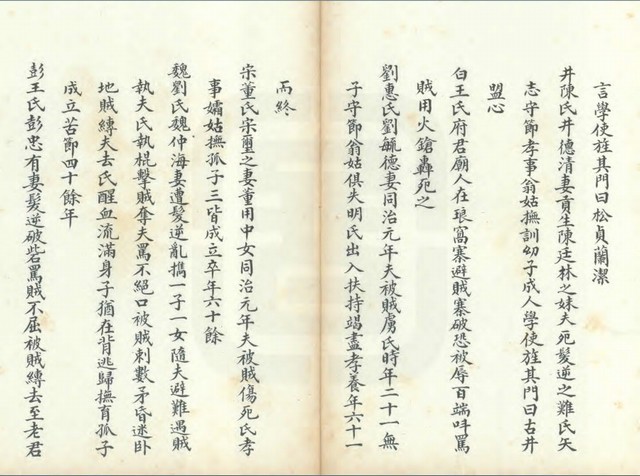 言學使旌其門曰松貞蘭潔
井陳氏井德清妻貢生陳廷林之妹夫死髮逆之難氏矢
志守節孝事翁姑撫訓幼子成人學使旌其門曰古井
盟心
白王氏府君廟人在琅窩寨避賊寨破恐被辱百端吽罵
賊用火鎗轟死之
劉惠氏劉毓德妻同治元年夫被賊虜氏時年二十一無
子守節翁姑俱失明氏出入扶持竭盡孝養年六十一
而終
宗董氏宗璽之妻董用中女同治元年夫被賊傷死氏孝
事孀姑撫孤子三皆成立卒年六十餘
魏劉氏魏仲海妻遭髮逆亂攜一子一女隨夫避難遇賊
執夫氏執棍擊賊奪夫罵不絕口被賊刺數矛昏迷卧
地賊縛夫去氏醒血流滿身子猶在背逃歸撫育孤子
成立苦節四十餘年
彭王氏彭忠有妻髮逆破砦罵賊不屈被賊縛去至老君